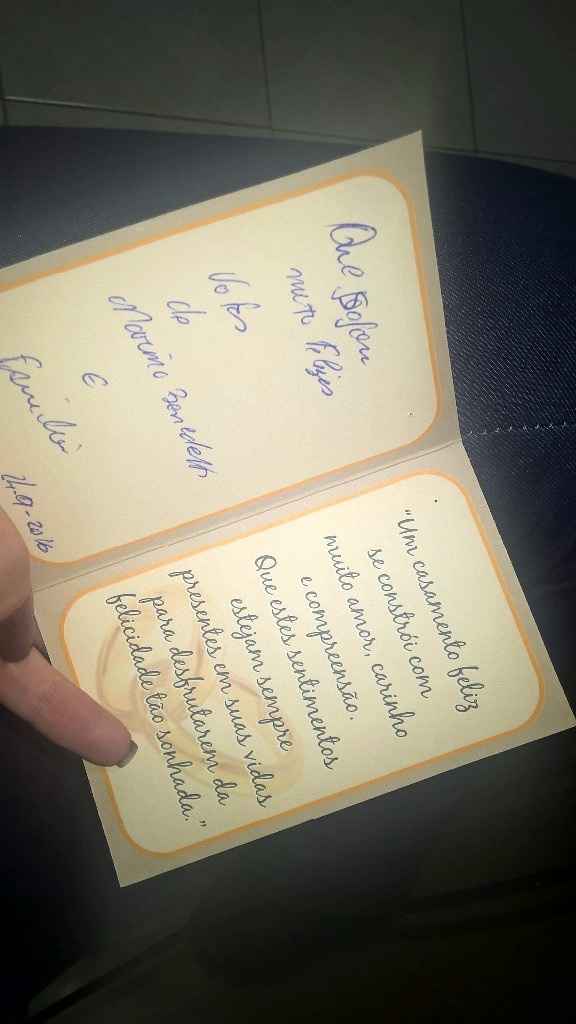 Que Sojam
muto Felizes
Votos
do
Marino Benedetti
E
Família
24.09.2016
"Um casamento feliz
se constrói com
muito amor, carinho
e compreensão.
Que estes sentimentos
estejam sempre
presentes em suas vidas
para desfrutarem da
felicidade tão sonhada."